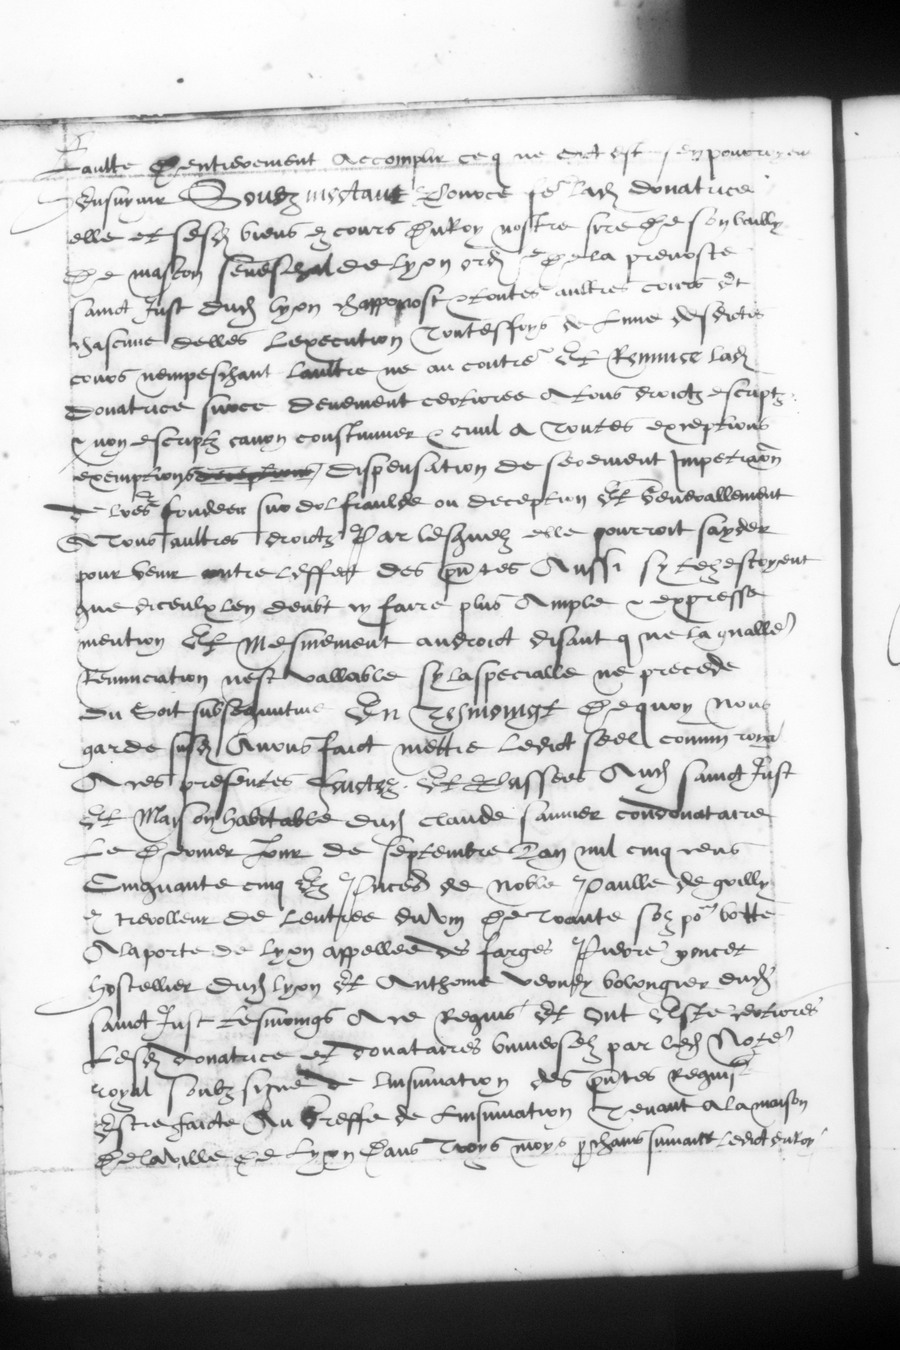 Faulte d'entierement accomplir ce q ne est et s'en pourroyent
ensuyvir Soubzmectant encores lad donatrice
elle et sesd biens es cours du Roy nostre sire de son bailly
de mascon seneschal de lyon ord de la prevoste
sainct Just dud lyon rapponost & toutes aultres cours et
chascune delles lexecution Toutesfoys de lune desdictes
cours nempeschant laultre ne au contre Et Renonce lad
donatrice surce deuement certioree A tous droictz escriptz
& non escriptz canon coustumier & civil A Toutes exceptions
exemptions dispensation de serement Impetraon
de lres fondees sur dol fraulde ou deception Et generallement
A Tous aultres droictz Par lesquelz elle pourroit sayder
pour venir contre leffect des pntes Aussi sy telz estoyent
que diceulx len deubt cy faire plus Ample & expresse
mention Et Mesmement au droict disant q ne la gnalle
Renunciation nest vallable sy la specialle ne precede
ou soit subsequutive En Tesmoingt de quoy Nous
garde susd Avons faict mettre ledict seel comun royal
A ces presentes Faictes Et Passees Aud sainct Just
Et Maison habitable dud claude saunier condonataire
Le Premier Jour de septembre Lan mil cinq cens
Cinquante cinq Es Pnces de noble Paulle de
controlleur de lentree du vin de
A la porte de lyon appellee des farges Pierre poncet
hostellier dud lyon Et Anthoine bolongier dud
sainct Just tesmoings A ce Requis Et Ont Este certiores
Lesd donatrice et donataires universelz par led Note
royal soubz signe de Linsinuation des pntes Requise
Estre faicte Au Greffe de Linsinuation Tenant A la maison
de la ville de Lyon Dans Troys moys prochains suivant ledict du Roy